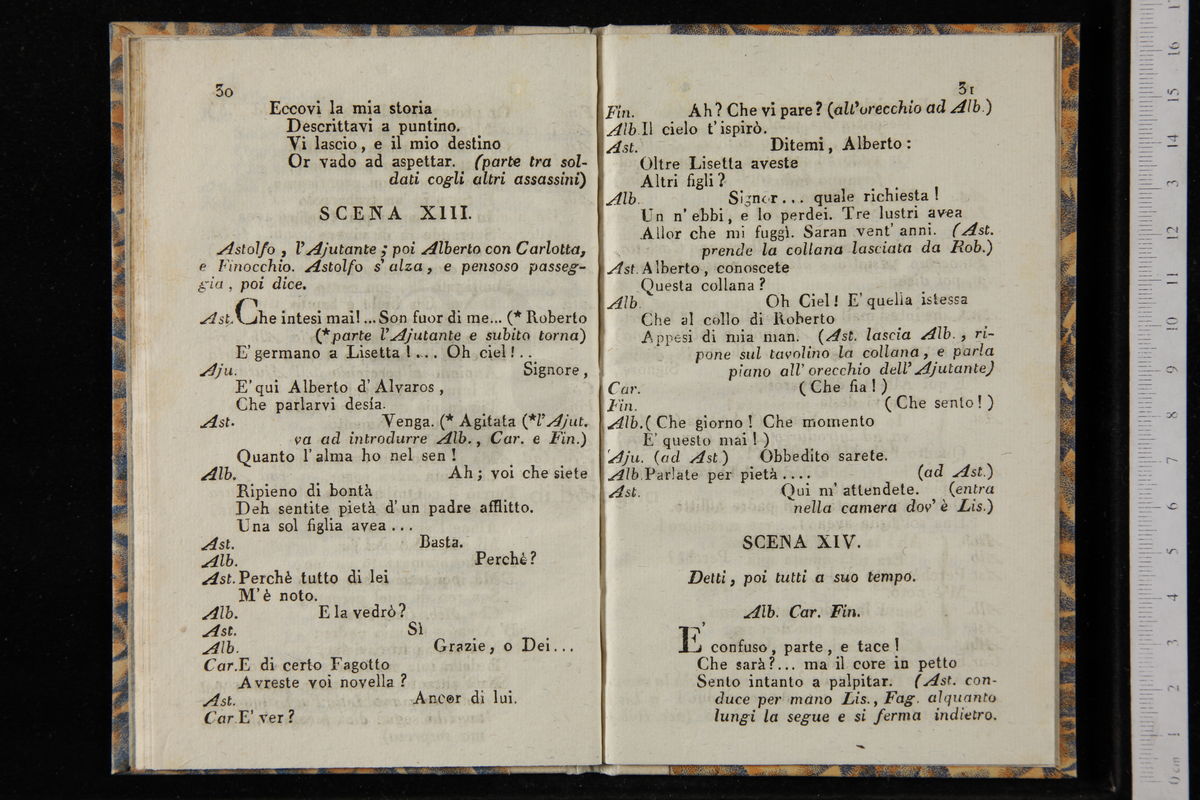 30
Eccovi la mia storia
Descrittavi a puntino.
Vi lascio, e il mio destino
Or vado ad aspettar. (parte tra sol-
dati cogli altri assassini)
SCENA XIII.
Astolfo, l'Ajutante; poi Alberto con Carlotta,
e Finocchio. Astolfo s'alza, e pensoso passeg-
gia, poi dice.
Ast. Che intesi mai!... Son fuor di me... (* Roberto
(*parte l'Ajutante e subito torna)
E' germano a Lisetta!... Oh ciel!..
Aju. Signore,
E' qui Alberto d'Alvaros,
Che parlarvi desía.
Ast. Venga. (* Agitata (*l'Ajut.
va ad introdurre Alb., Car. e Fin.)
Quanto l'alma ho nel sen!
Alb. Ah; voi che siete
Ripieno di bontà
Deh sentite pietà d'un padre afflitto.
Una sol figlia avea...
Ast. Basta.
Alb. Perchè?
Ast. Perchè tutto di lei
M'è noto.
Alb. E la vedrò?
Ast. Sì
Alb. Grazie, o Dei...
Car. E di certo Fagotto
Avreste voi novella?
Ast. Ancor di lui.
Car. E' ver?
31
Fin. Ah? Che vi pare? (all'orecchio ad Alb.)
Alb Il cielo t'ispirò.
Ast. Ditemi, Alberto:
Oltre Lisetta aveste
Altri figli?
Alb. Signor... quale richiesta!
Un n'ebbi, e lo perdei. Tre lustri avea
Allor che mi fuggì. Saran vent'anni. (Ast.
prende la collana lasciata da Rob.)
Ast. Alberto, conoscete
Questa collana?
Alb. Oh Ciel! E' quella istessa
Che al collo di Roberto
Appesi di mia man. (Ast. lascia Alb., ri-
pone sul tavolino la collana, e parla
piano all'orecchio dell'Ajutante)
Car. (Che fia!)
Fin. (Che sento!)
Alb. (Che giorno! Che momento
E' questo mai!)
Aju. (ad Ast) Obbedito sarete.
Alb Parlate per pietà.... (ad Ast.)
Ast. Qui m'attendete. (entra
nella camera dov'è Lis.)
SCENA XIV.
Detti, poi tutti a suo tempo.
Alb. Car. Fin.
E' confuso, parte, e tace!
Che sarà?... ma il core in petto
Sento intanto a palpitar. (Ast. con-
duce per mano Lis., Fag. alquanto
lungi la segue e si ferma indietro.
0 cm 1 2 3 4 5 6 7 8 9 10 11 12 13 14 15 16